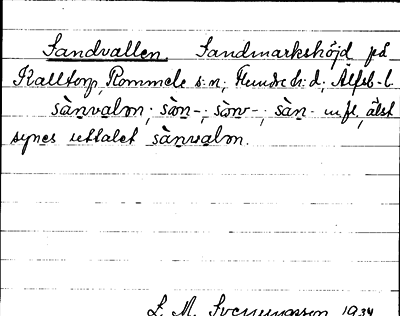 Sandvallen Sandmarkshöjd på
Kalltorp, Rommele s:n, Flundre h:d; Älfsb. l.
sànvalən; sàn-; sànv-, sàn- m.fl, älst
synes uttalet sànvalən.
L. M. Svenungsson 1934